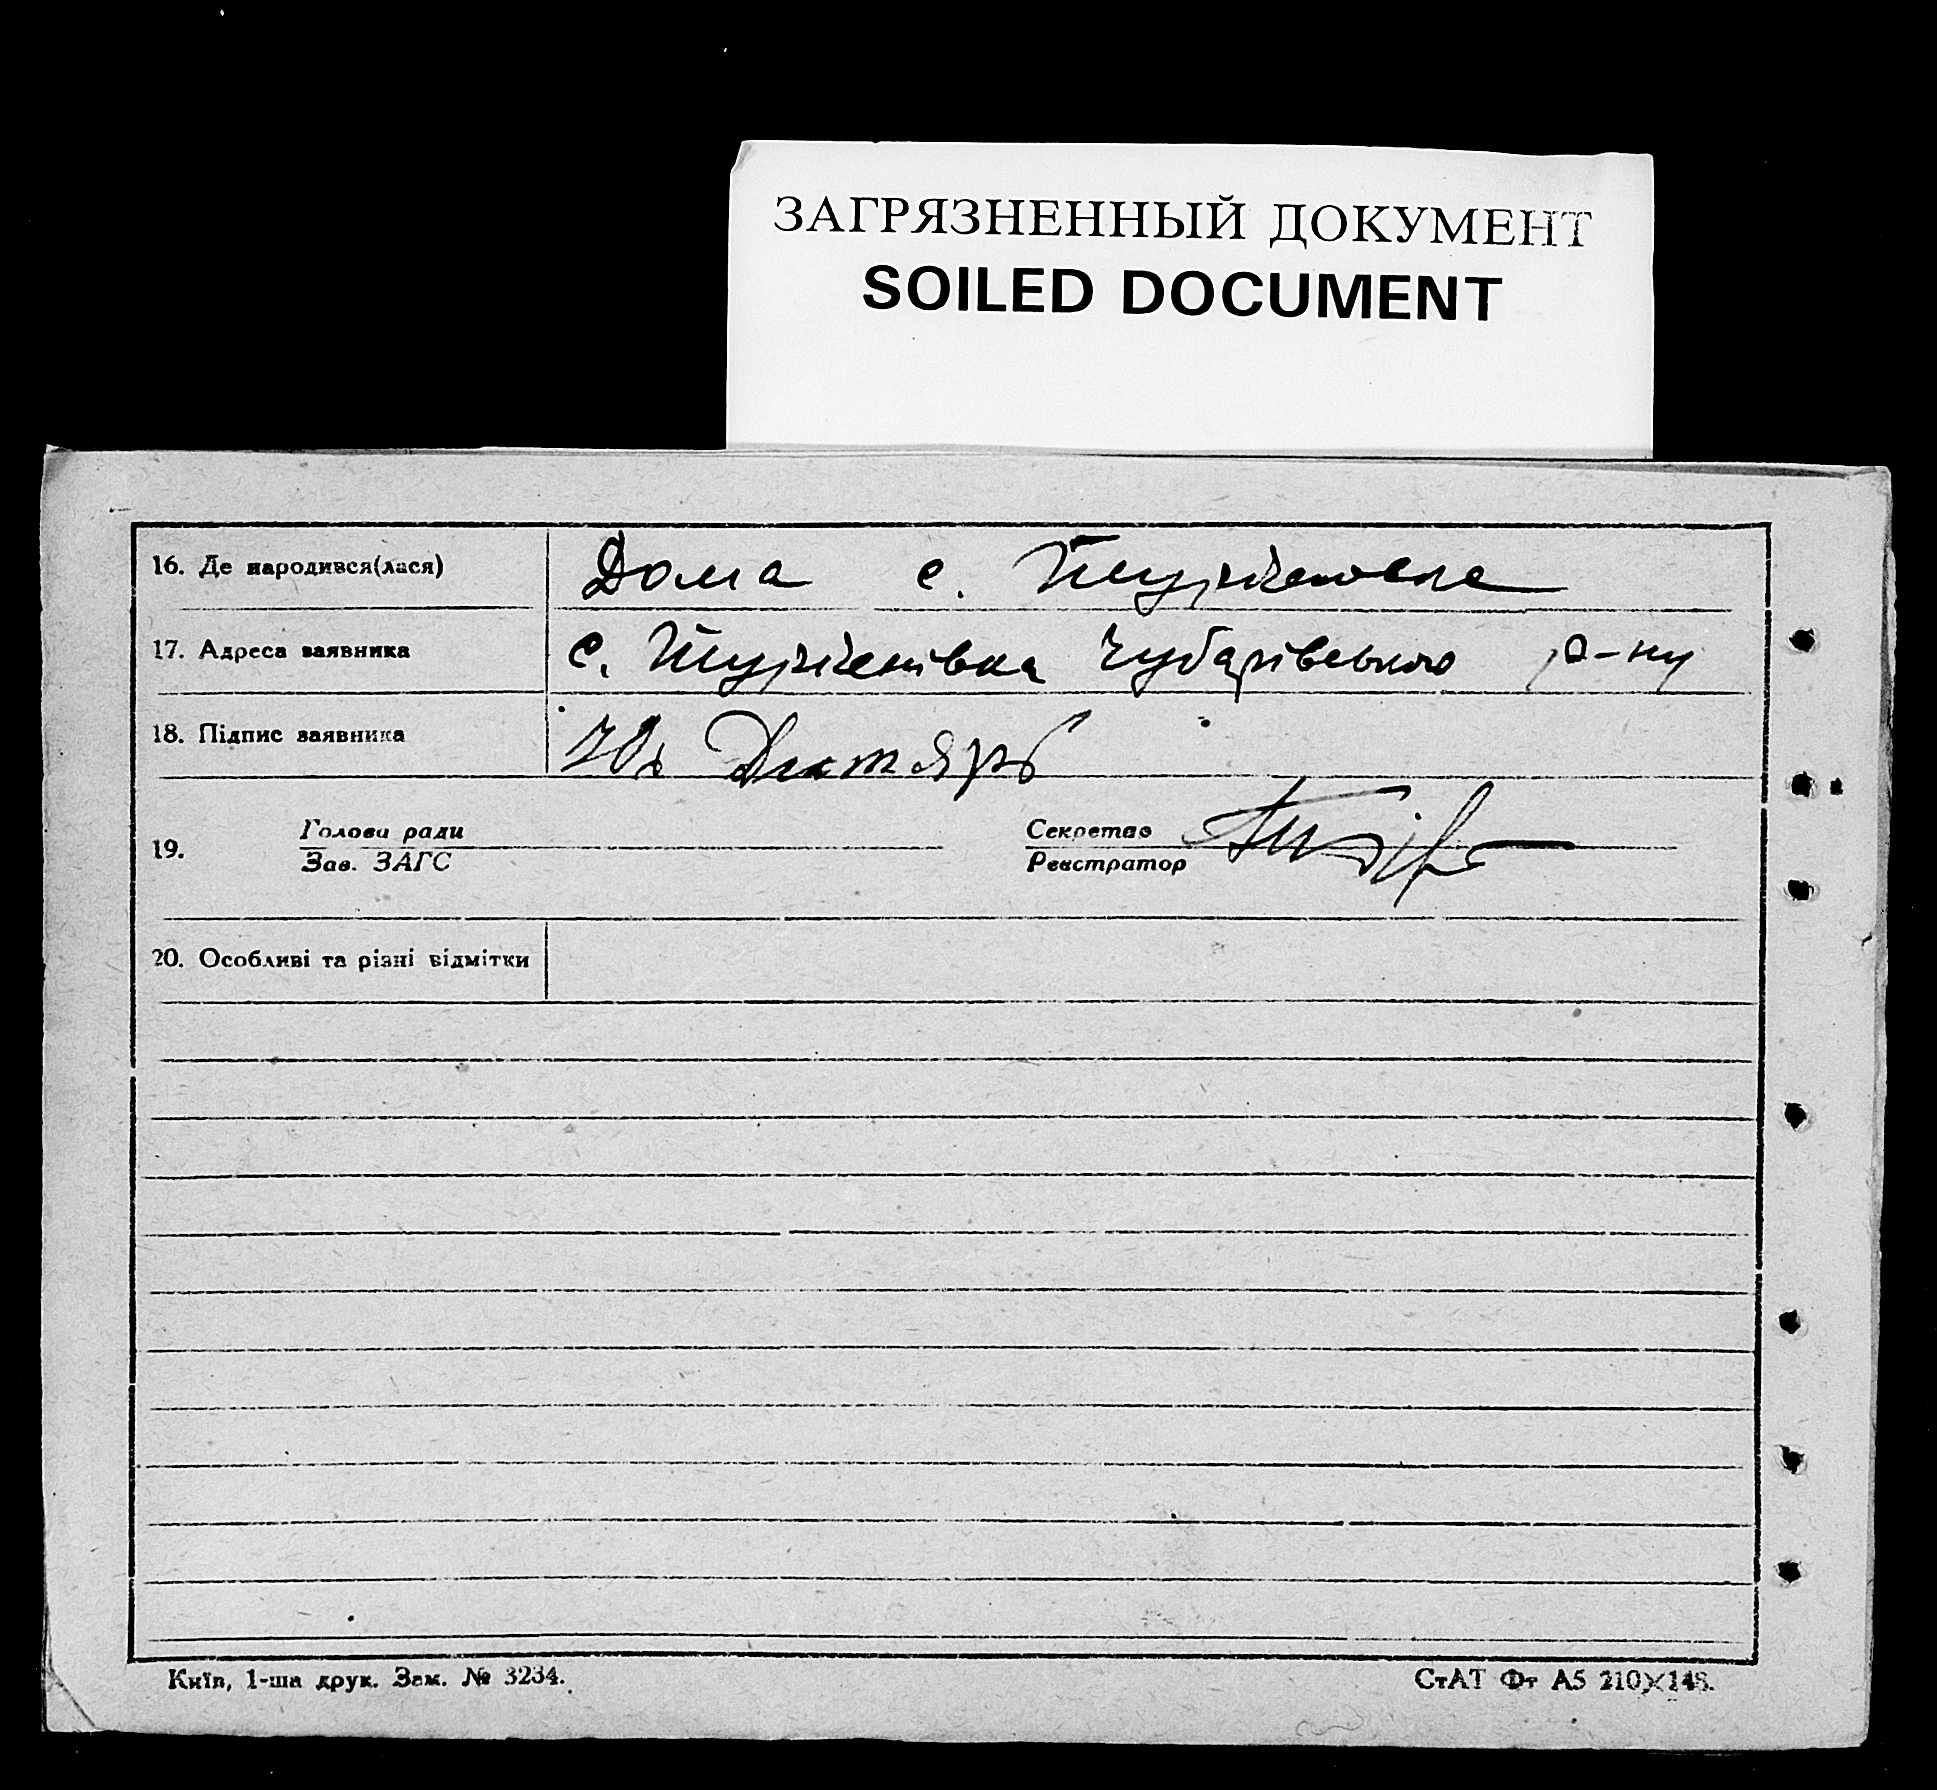 ЗАГРЯЗНЕННЫЙ ДОКУМЕНТ
SOILED DOCUMENT
16. Де народився(лася) Дома с.
17. Адреса заявника с. Чубарівського р-ну
18. Підпис заявника
19. Голова ради Секретар
Зав. ЗАГС Реєстратор
20. Особливі та різні відмітки
Київ, 1-ша друк. Зам. № 3234.
СтАТ Фт А5 210×148.